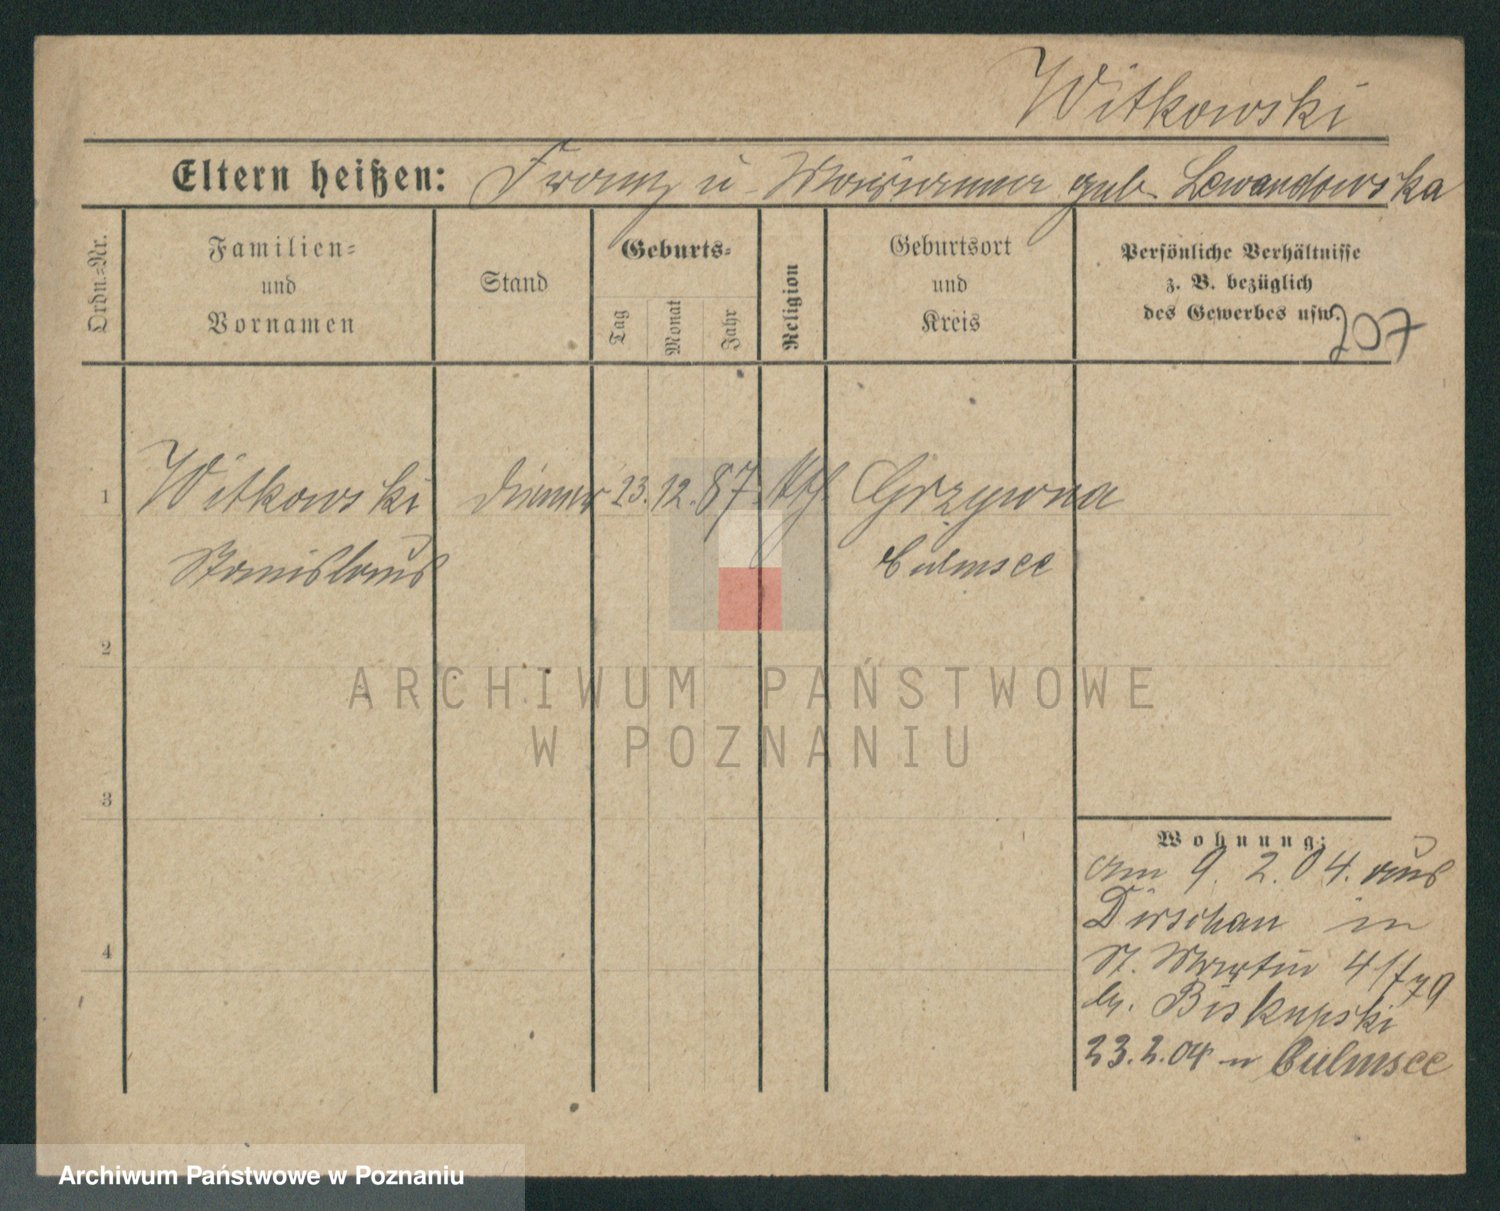 Witkowski
Eltern heißen: Franz u Marianna geb Lewandowska
Ordn.=Nr.
Familien=
und
Vornamen
Stand
Geburts=
Tag
Monat
Jahr
Religion
Geburtsort
und
Kreis
Persönliche Verhältnisse
z. B. bezüglich
des Gewerbes usw.
207
1 Witkowski Diener 23. 12. 87 kth Grzywna
Stanislaus Culmsee
2
3
4
Wohnung:
am 9. 2. 04. aus
Dirschau in
St. Martin
b. Biskupski
23.2.04 n Culmsee
ARCHIWUM PAŃSTWOWE
W POZNANIU
Archiwum Państwowe w Poznaniu